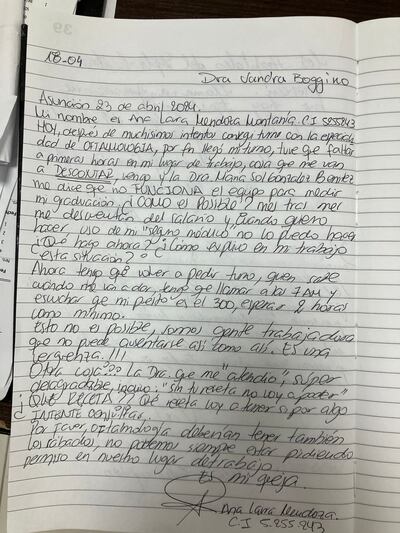 18-04
Dra Sandra Boggino
Asunción 23 de abril 2024.
Mi nombre es Ana Lara Mendoza Montanía. C.I 5255243
HOY, después de muchisimos intentos consegui turno con la especiali
dad de OFTALMOLOGIA, por fin llegó mi turno, tuve que faltar
a primeras horas en mi lugar de trabajo, cosa que me van
a DESCONTAR, vengo y la Dra. Maria Sol Gonzalez Benitez
me dice que no FUNCIONA el equipo para medir
mi graduación, ¿COMO es POSIBLE? mes tras mes
me descuentan del salario y cuando quiero
hacer uso de mi "seguro médico" no lo puedo hacer
¿Qué hago ahora? ¿Cómo explico en mi trabajo
esta situación?
Ahora tengo que volver a pedir turno, quien sabe
cuando me van a dar, tengo que llamar a las 7 AM y
escuchar que mi puesto es el 300, esperar 2 horas
como minimo.
Esto no es posible, somos gente trabajadora
que no puede ausentarse asi como asi. Es una
verguenza.!!!
Otra cosa??? La Dra. que me "atendio", súper
desagradable, "Sin tu receta no voy a poder"
¿ QUE RECETA?? Qué receta voy a tener si por algo
INTENTE consultar.
Por favor, oftalmología deberían tener también
los sábados, no podemos siempre estar pidiendo
permiso en nuestro lugar de trabajo.
Es mi queja.
Ana Lara Mendoza.
C.I 5.255.243